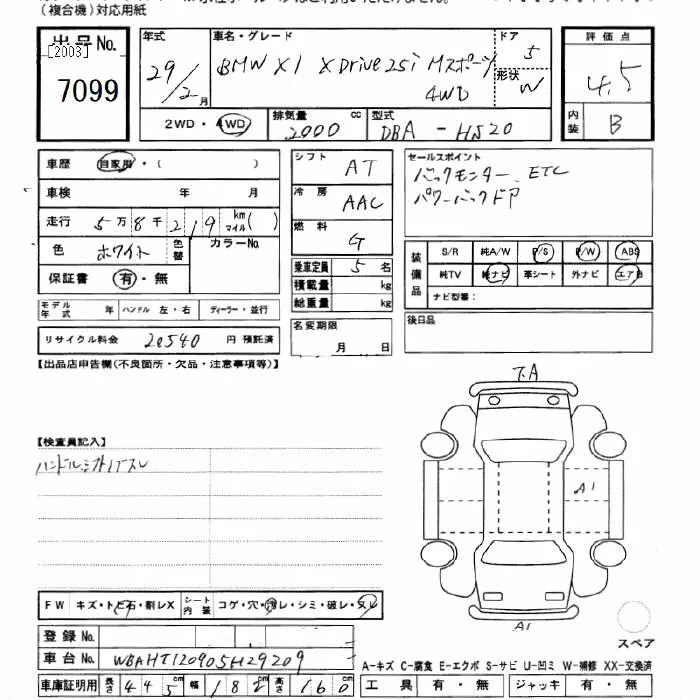 (複合機)対応用紙
出品No.
[2003]
7099
年式
29/2月
車名・グレード
BMW X1 XDrive25i Mスポーツ
4WD
ドア
5
形状
W
評価点
4.5
内装
B
2WD・4WD
排気量
2000
cc
型式
DBA - HS20
車歴 自家用・( )
車検 年 月
走行 5万8千219 km マイル( )
色 ホワイト 色替 カラーNo.
保証書 有・無
モデル年式 年 ハンドル 左・右 ディーラー・並行
リサイクル料金 20540 円 預託済
シフト AT
冷房 AAC
燃料 G
乗車定員 5 名
積載量 kg
総重量 kg
名変期限
月 日
セールスポイント
バックモンター ETC
パワーバックドア
装備品
S/R 純A/W P/S P/W ABS
純TV 純ナビ 革シート 外ナビ エアB
ナビ型番:
後日品
【出品店申告欄(不良箇所・欠品・注意事項等)】
【検査員記入】
ハンドルシフトパスレ
FW キズ・トビ石・割レX
シート内装 コゲ・穴・汚レ・シミ・破レ・スレ
登録No.
車台No. WBAHT120905H29209
車庫証明用 長さ 445 cm 幅 182 cm 高さ 160 cm
下A
A1
A1
スペア
A-キズ C-腐食 E-エクボ S-サビ U-凹ミ W-補修 XX-交換済
工具 有・無 ジャッキ 有・無